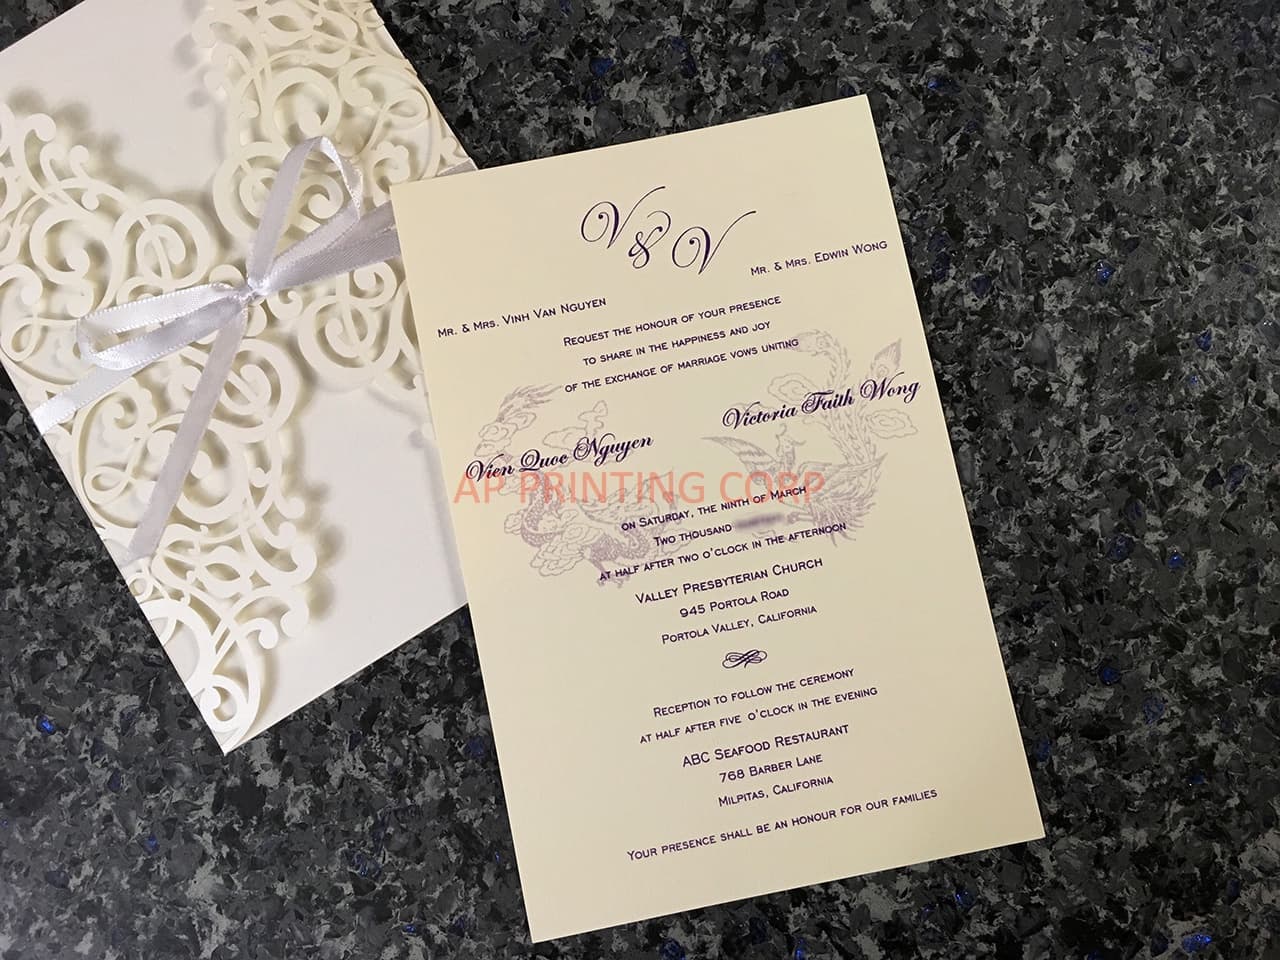 V & V
Mr. & Mrs. Vinh Van Nguyen
Mr. & Mrs. Edwin Wong
Request the honour of your presence
to share in the happiness and joy
of the exchange of marriage vows uniting
Vien Quoc Nguyen
Victoria Faith Wong
AP PRINTING CORP
on Saturday, the ninth of March
Two thousand
at half after two o'clock in the afternoon
Valley Presbyterian Church
945 Portola Road
Portola Valley, California
Reception to follow the ceremony
at half after five o'clock in the evening
ABC Seafood Restaurant
768 Barber Lane
Milpitas, California
Your presence shall be an honour for our families